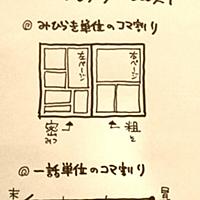 ◎ みひらき単位のコマ割り
右ページ
左ページ
密 ← → 粗
みつ そ
◎ 一話単位のコマ割り
末